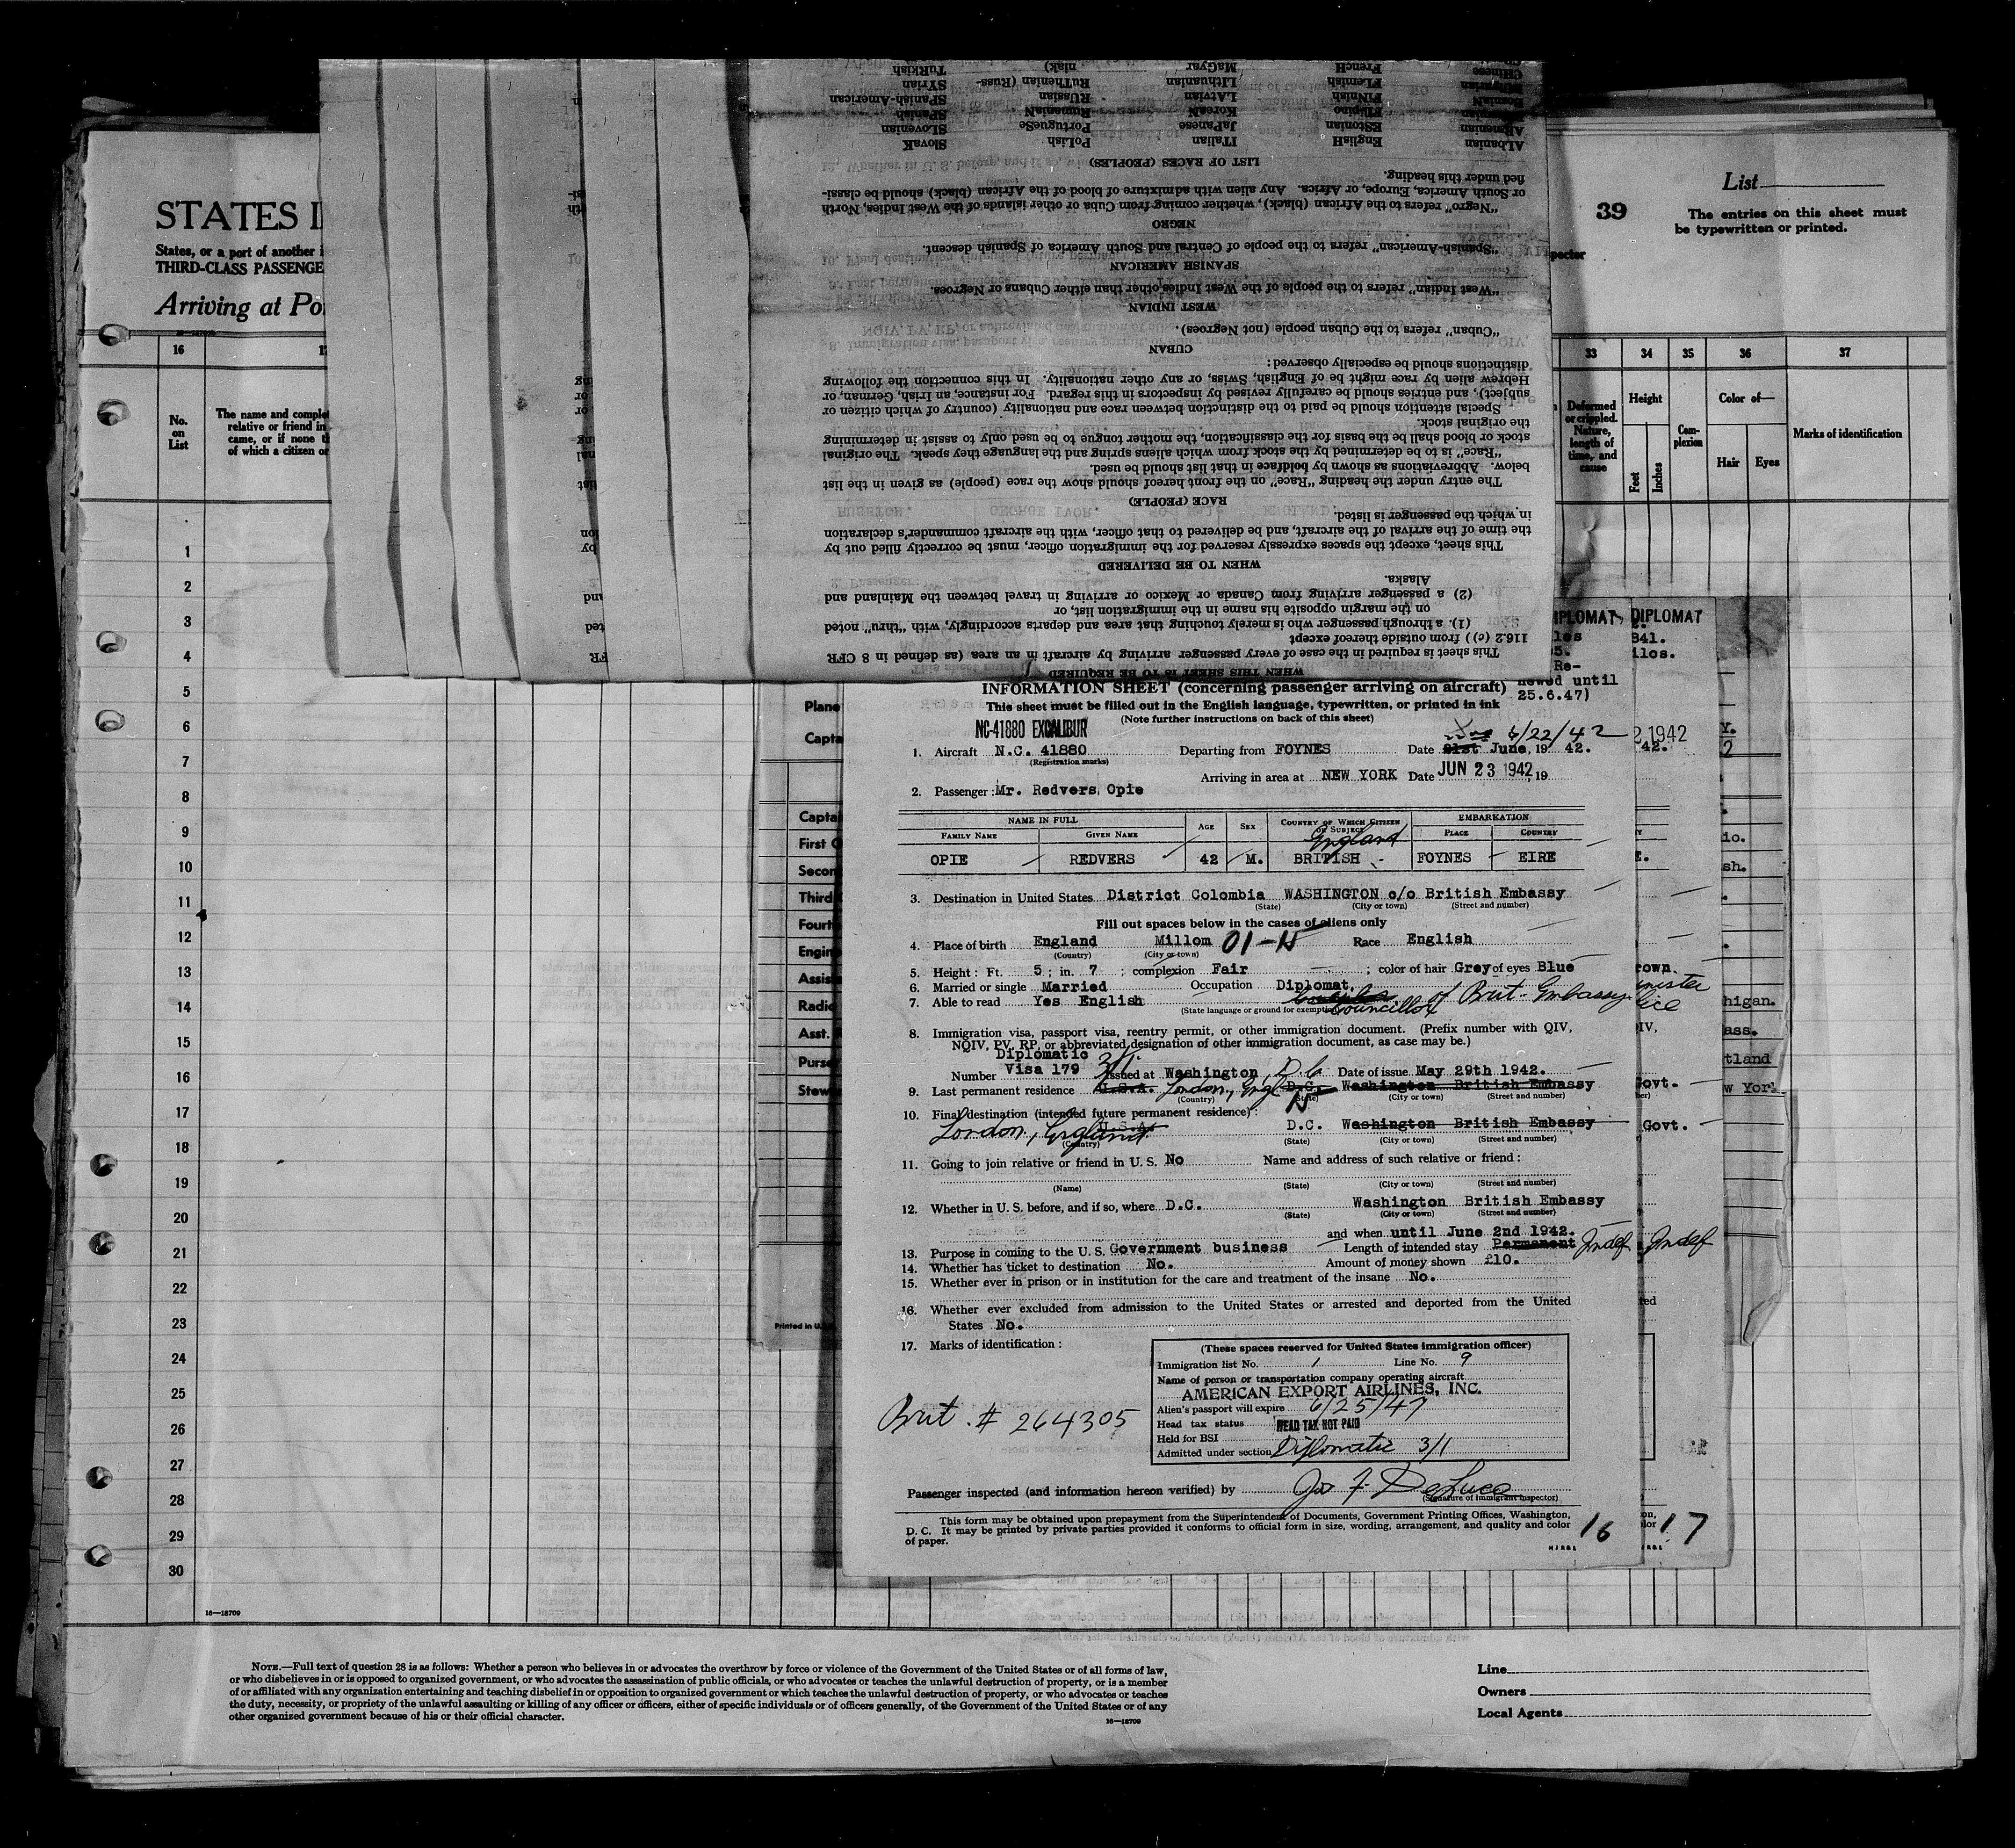 STATES I
States, or a part of another i
THIRD-CLASS PASSENGE
Arriving at Po
16
No.
on
List
The name and comple
relative or friend in
came, or if none t
of which a citizen or
1
2
3
4
5
6
7
8
9
10
11
12
13
14
15
16
17
18
19
20
21
22
23
24
25
26
27
28
29
30
16—18709
WHEN THIS SHEET IS TO BE REQUIRED
This sheet is required in the case of every passenger arriving by aircraft in an area (as defined in 8 CFR
116.2 (c)) from outside thereof except
(1). a through passenger who is merely touching that area and departs accordingly, with "thru" noted
on the margin opposite his name in the immigration list, or
(2) a passenger arriving from Canada or Mexico or arriving in travel between the Mainland and
Alaska.
WHEN TO BE DELIVERED
This sheet, except the spaces expressly reserved for the immigration officer, must be correctly filled out by
the time of the arrival of the aircraft, and be delivered to that officer, with the aircraft commander's declaration
in which the passenger is listed.
RACE (PEOPLE)
The entry under the heading "Race" on the front hereof should show the race (people) as given in the list
below. Abbreviations as shown by boldface in that list should be used.
"Race" is to be determined by the stock from which aliens spring and the language they speak. The original
stock or blood shall be the basis for the classification, the mother tongue to be used only to assist in determining
the original stock.
Special attention should be paid to the distinction between race and nationality (country of which citizen or
subject), and entries should be carefully revised by inspectors in this regard. For instance, an Irish, German, or
Hebrew alien by race might be of English, Swiss, or any other nationality. In this connection the following
distinctions should be especially observed:
CUBAN
"Cuban" refers to the Cuban people (not Negroes).
WEST INDIAN
"West Indian" refers to the people of the West Indies other than either Cubans or Negroes.
SPANISH AMERICAN
"Spanish-American" refers to the people of Central and South America of Spanish descent.
NEGRO
"Negro" refers to the African (black), whether coming from Cuba or other islands of the West Indies, North
or South America, Europe, or Africa. Any alien with admixture of blood of the African (black) should be classi-
fied under this heading.
LIST OF RACES (PEOPLES)
ALbanian EnglisH ITalian PoLish SlovaK
ARmenian EStonian JaPanese PortugueSe SLovenian
FIlipino KoreaN RumaniaN SPanish
BosniaN FINnish LAtvian RUssian SPAnish-American
BUlgarian FLemish LIthuanian RuThenian (Russ- SYrian
CHinese FrencH MaGyar niak) TuRkish
39
List
The entries on this sheet must
be typewritten or printed.
pector
33 34 35 36 37
Deformed
or crippled.
Nature,
length of
time, and
cause
Height
Feet
Inches
Com-
plexion
Color of—
Hair Eyes
Marks of identification
IPLOMAT DIPLOMAT
841.
ilos.
Re-
newed until
25.6.47)
2 1942
42.
Plane
Capta
Capta
First O
Secon
Third
Fourt
Engin
Assis
Radio
Asst.
Purse
Stew
Printed in U.S.
INFORMATION SHEET (concerning passenger arriving on aircraft)
This sheet must be filled out in the English language, typewritten, or printed in ink
(Note further instructions on back of this sheet)
NC-41880 EXCALIBUR
6/22/42
1. Aircraft N.C. 41880 Departing from FOYNES Date 21st June, 19 42.
(Registration marks)
Arriving in area at NEW YORK Date JUN 23 1942, 19
2. Passenger: Mr. Redvers Opie
NAME IN FULL AGE SEX COUNTRY OF WHICH CITIZEN OR SUBJECT EMBARKATION
FAMILY NAME GIVEN NAME PLACE COUNTRY
England
OPIE REDVERS 42 M. BRITISH FOYNES EIRE
3. Destination in United States District Colombia WASHINGTON c/o British Embassy
(State) (City or town) (Street and number)
Fill out spaces below in the cases of aliens only
4. Place of birth England Millom 01-N Race English
(Country) (City or town)
5. Height: Ft. 5; in. 7; complexion Fair; color of hair Grey of eyes Blue
6. Married or single Married Occupation Diplomat.
7. Able to read Yes English Councillor of Brit. Embassy
(State language or ground for exemption)
8. Immigration visa, passport visa, reentry permit, or other immigration document. (Prefix number with QIV,
NQIV, PV, RP, or abbreviated designation of other immigration document, as case may be.)
Diplomatic
Number Visa 179 3/1 Issued at Washington D.C Date of issue May 29th 1942.
9. Last permanent residence U.S.A. London, Engl D.C. Washington British Embassy
(Country) (State) (City or town) (Street and number)
N
10. Final destination (intended future permanent residence):
London, England U.S.A. D.C. Washington British Embassy
(Country) (State) (City or town) (Street and number)
11. Going to join relative or friend in U. S. No Name and address of such relative or friend:
(Name) (State) (City or town) (Street and number)
12. Whether in U. S. before, and if so, where D.C. Washington British Embassy
(State) (City or town) (Street and number)
and when until June 2nd 1942.
13. Purpose in coming to the U. S. Government business Length of intended stay Permanent Indef Indef
14. Whether has ticket to destination No. Amount of money shown £10.
15. Whether ever in prison or in institution for the care and treatment of the insane No.
16. Whether ever excluded from admission to the United States or arrested and deported from the United
States No.
17. Marks of identification:
Brit. # 264305
(These spaces reserved for United States immigration officer)
Immigration list No. 1 Line No. 9
Name of person or transportation company operating aircraft
AMERICAN EXPORT AIRLINES, INC.
Alien's passport will expire 6/25/47
Head tax status HEAD TAX NOT PAID
Held for BSI
Admitted under section Diplomatic 3/1
Passenger inspected (and information hereon verified) by Jos F. DeLuca
(Signature of Immigrant Inspector)
This form may be obtained upon prepayment from the Superintendent of Documents, Government Printing Offices, Washington,
D. C. It may be printed by private parties provided it conforms to official form in size, wording, arrangement, and quality and color
of paper.
16
17
rown.
inister
higan.
ass.
tland
w York
Govt.
Govt.
NOTE.—Full text of question 28 is as follows: Whether a person who believes in or advocates the overthrow by force or violence of the Government of the United States or of all forms of law,
or who disbelieves in or is opposed to organized government, or who advocates the assassination of public officials, or who advocates or teaches the unlawful destruction of property, or is a member
of or affiliated with any organization entertaining and teaching disbelief in or opposition to organized government or which teaches the unlawful destruction of property, or who advocates or teaches
the duty, necessity, or propriety of the unlawful assaulting or killing of any officer or officers, either of specific individuals or of officers generally, of the Government of the United States or of any
other organized government because of his or their official character.
16—18709
Line
Owners
Local Agents